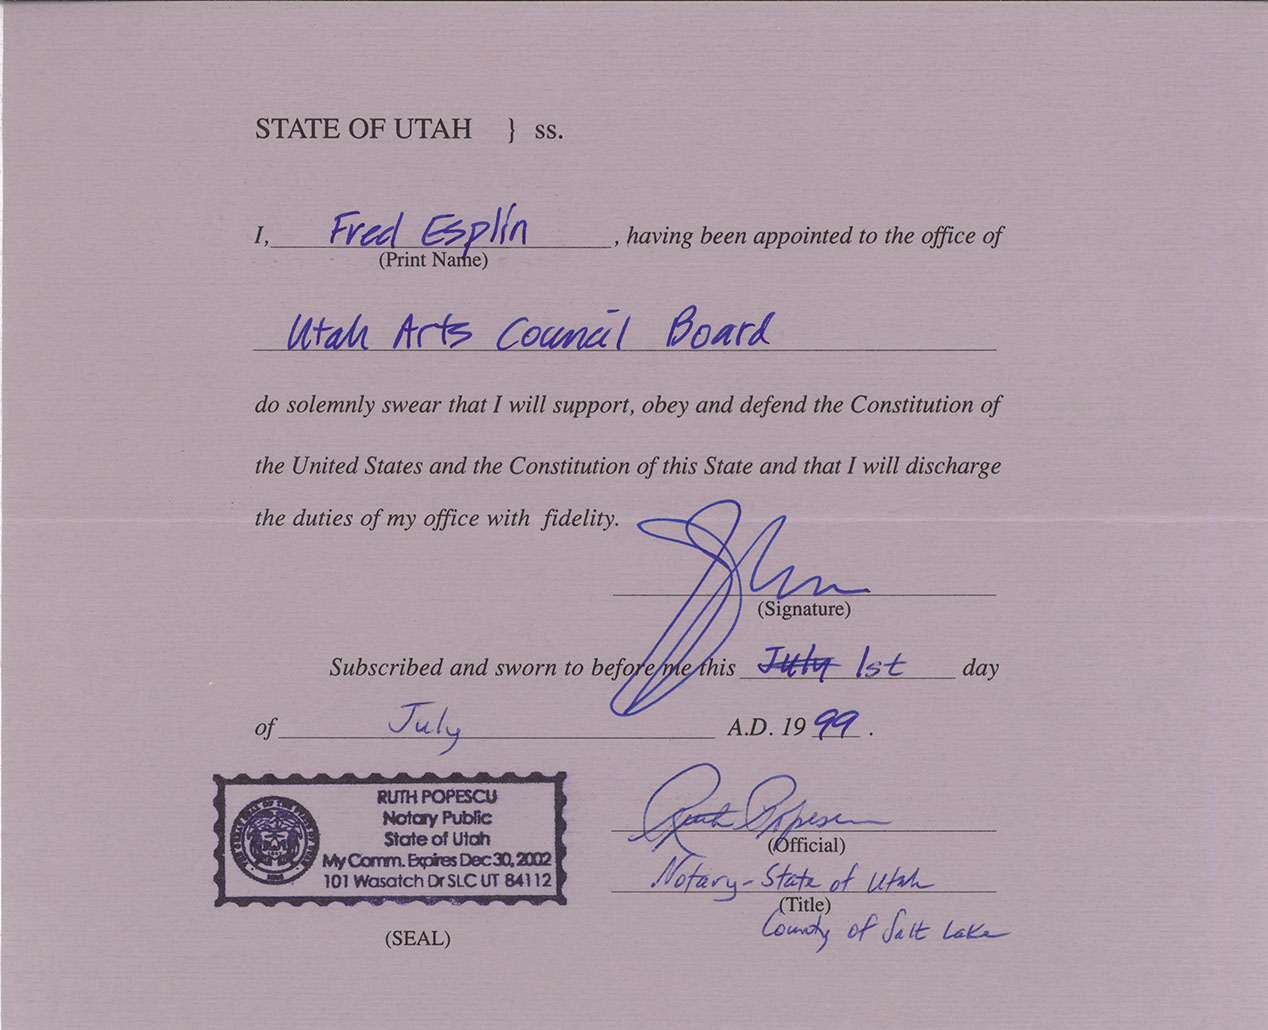 STATE OF UTAH } ss.
I, Fred Esplin, having been appointed to the office of
(Print Name)
Utah Arts Council Board
do solemnly swear that I will support, obey and defend the Constitution of
the United States and the Constitution of this State and that I will discharge
the duties of my office with fidelity.
(Signature)
Subscribed and sworn to before me this July 1st day
of July A.D. 19 99.
RUTH POPESCU
Notary Public
State of Utah
My Comm. Expires Dec 30, 2002
101 Wasatch Dr SLC UT 84112
(SEAL)
Ruth Popescu
(Official)
Notary - State of Utah
(Title)
County of Salt Lake